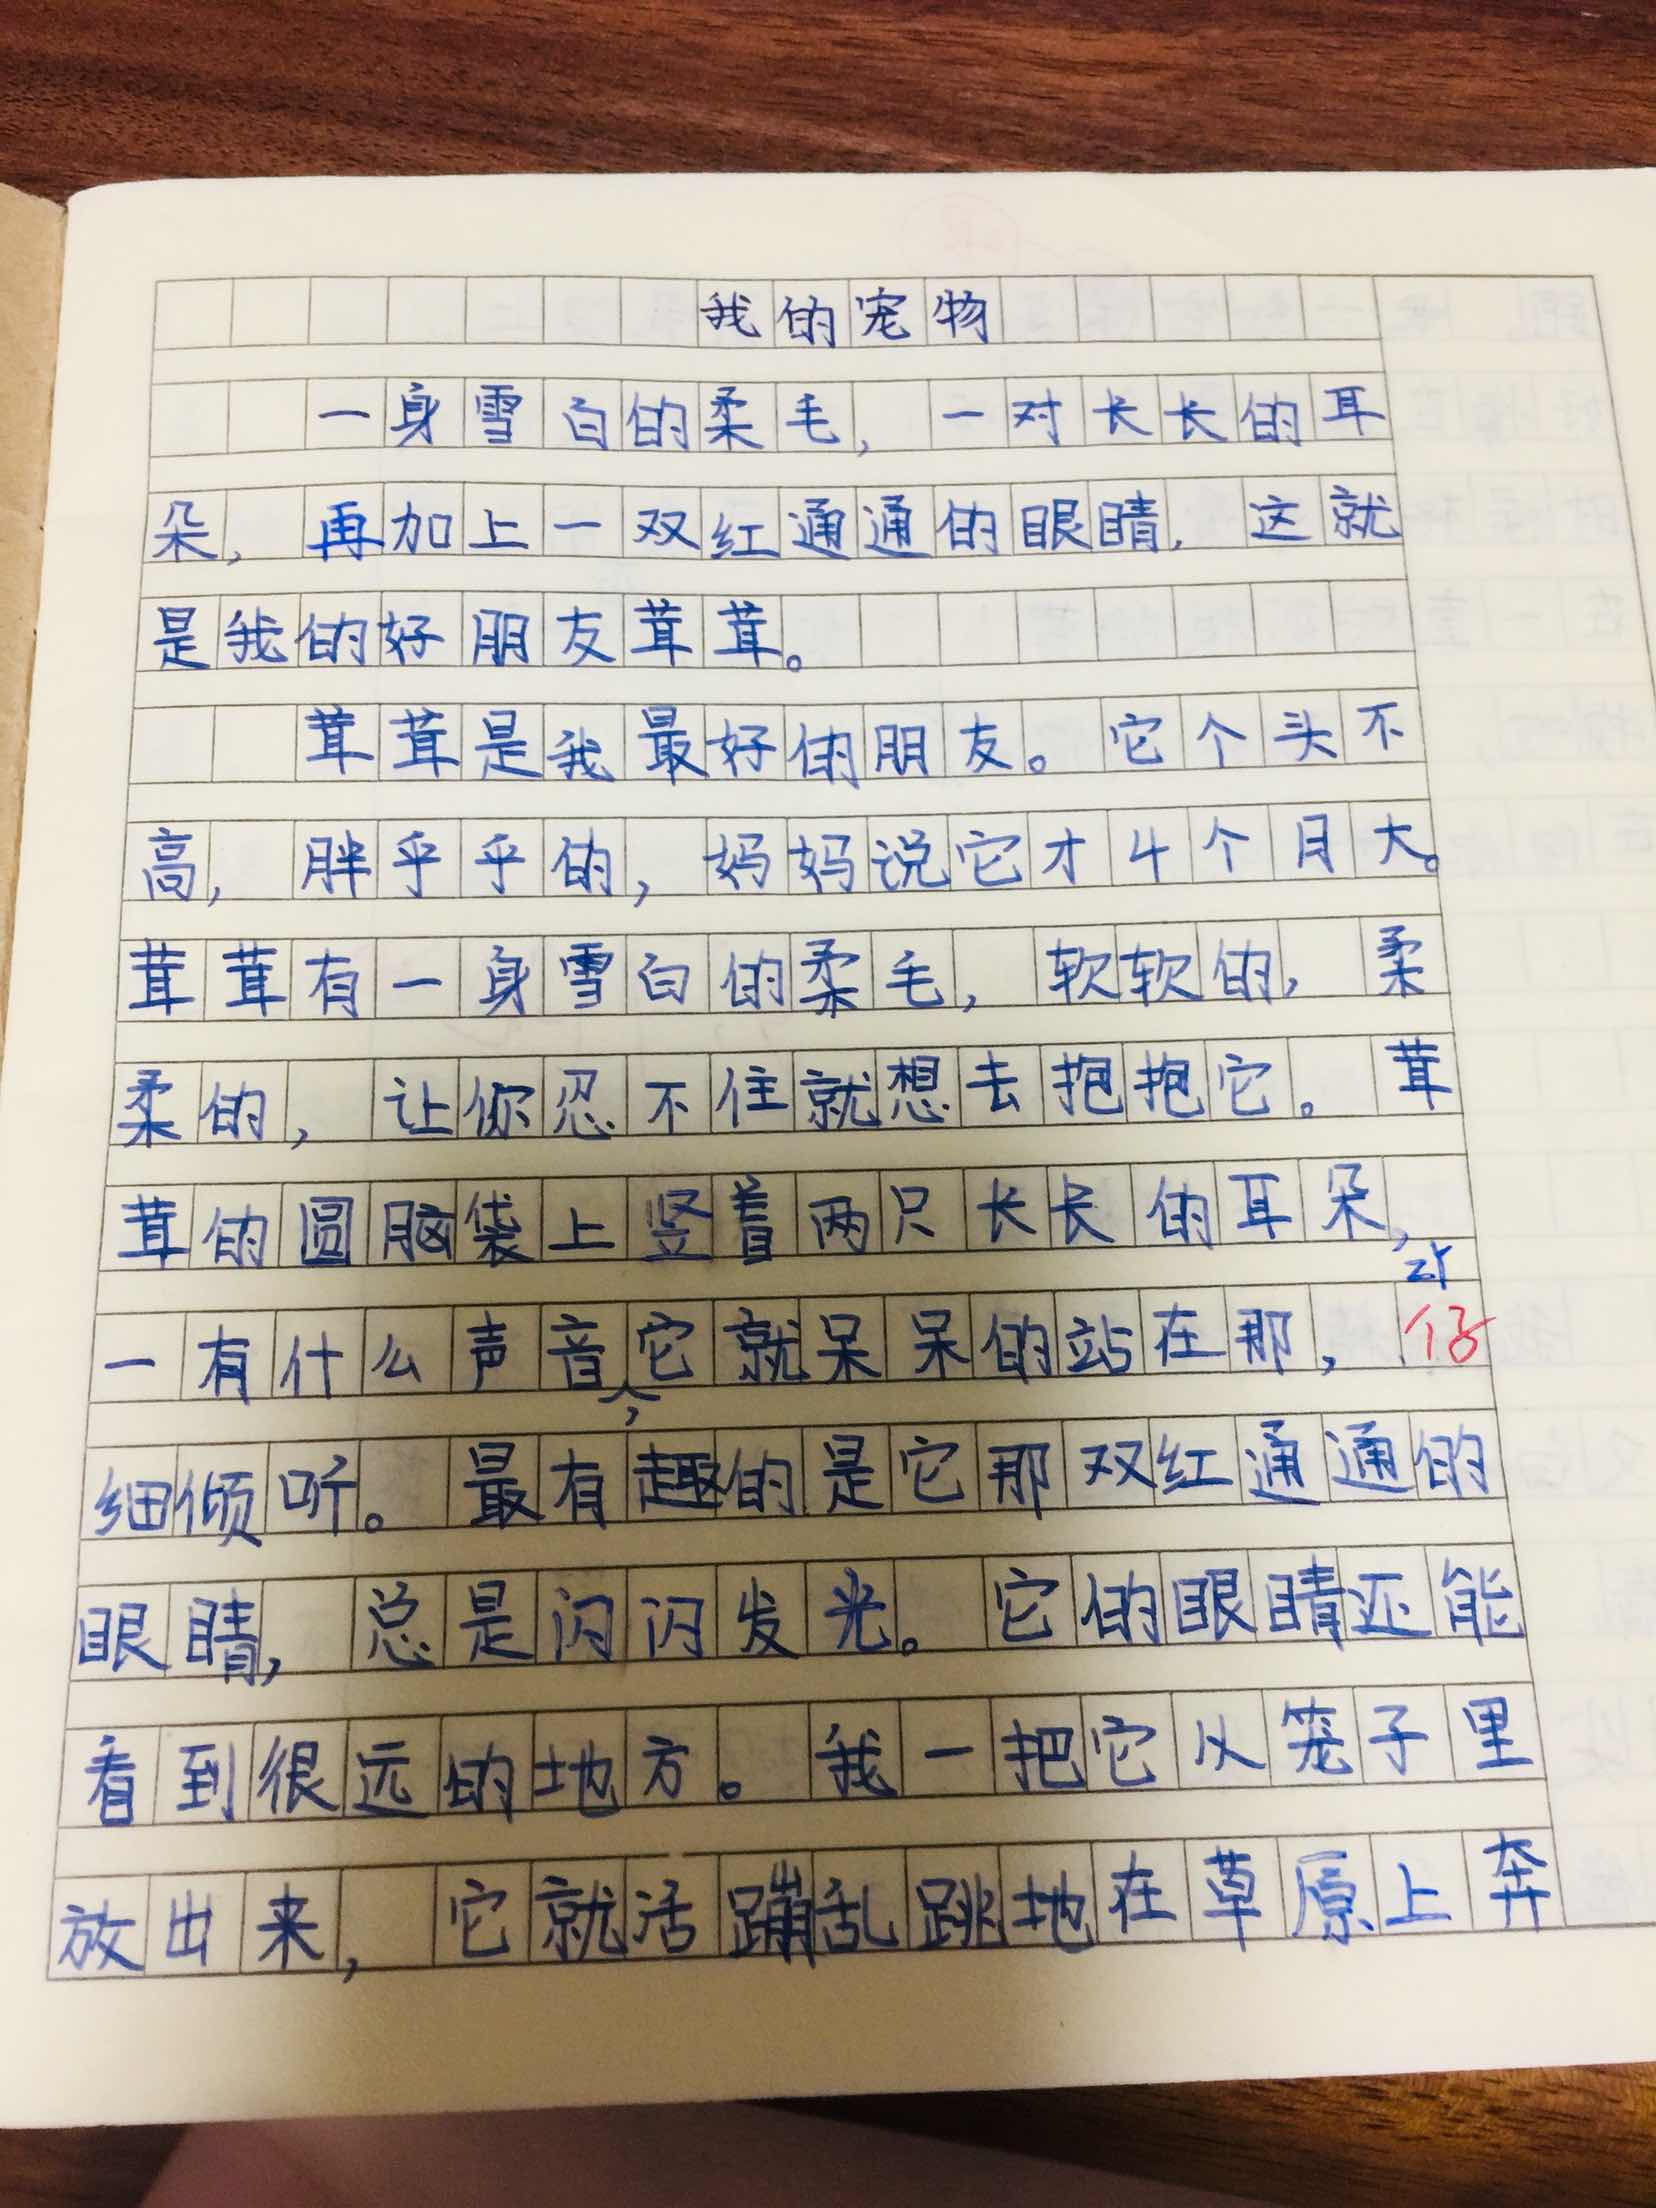 我的宠物
一身雪白的柔毛，一对长长的耳
朵，再加上一双红通通的眼睛，这就
是我的好朋友茸茸。
茸茸是我最好的朋友。它个头不
高，胖乎乎的，妈妈说它才4个月大。
茸茸有一身雪白的柔毛，软软的，柔
柔的，让你忍不住就想去抱抱它。茸
茸的圆脑袋上竖着两只长长的耳朵，
一有什么声音，它就呆呆的站在那，仔
细倾听。最有趣的是它那双红通通的
眼睛，总是闪闪发光。它的眼睛还能
看到很远的地方。我一把它从笼子里
放出来，它就活蹦乱跳地在草原上奔